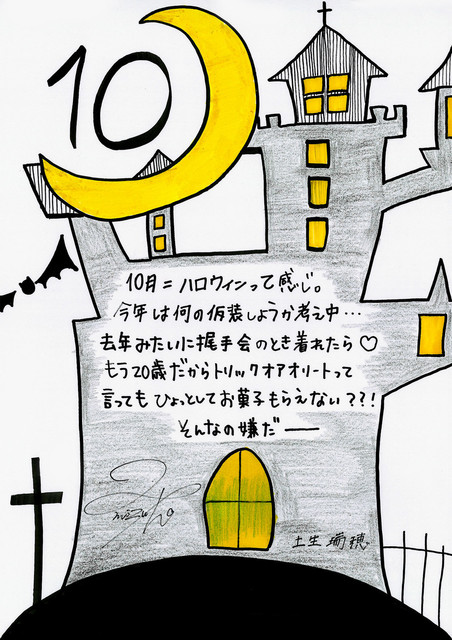 10
10月=ハロウィンって感じ。
今年は何の仮装しようか考え中…
去年みたいに握手会のとき着れたら♡
もう20歳だからトリックオアオリートって
言ってもひょっとしてお菓子もらえない???!
そんなの嫌だー
土生瑞穂